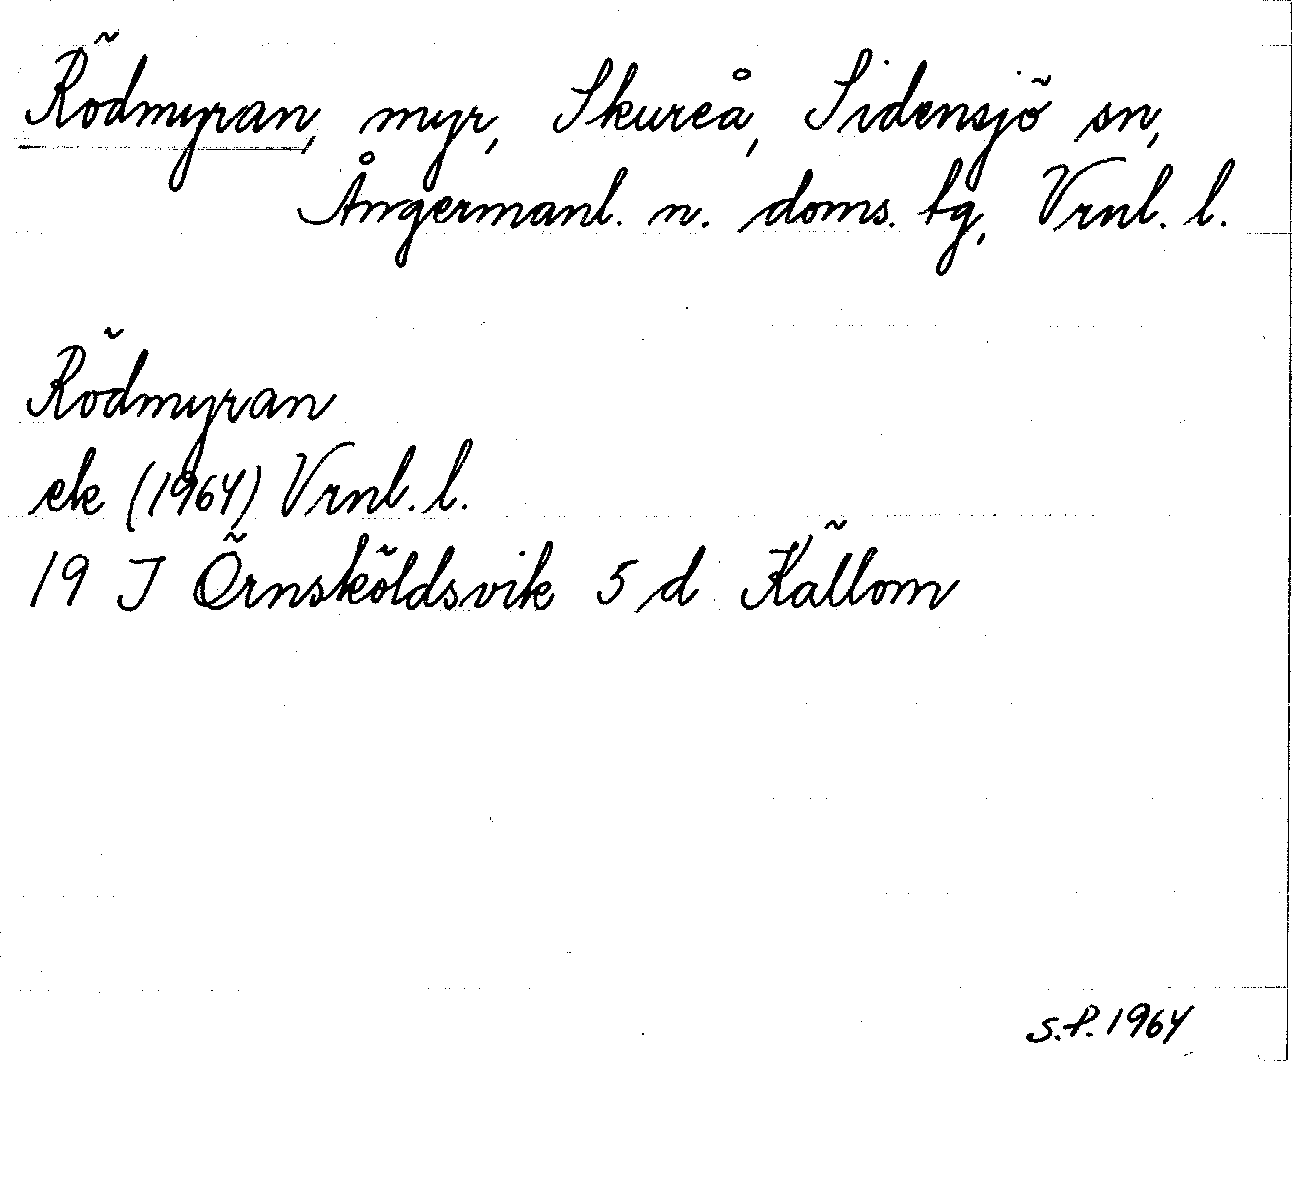 Rödmyran, myr, Skureå, Sidensjö sn,
Ångermanl. n. doms. tg, Vrnl. l.
Rödmyran
ek (1964) Vrnl. l.
19 J Örnsköldsvik 5 d Källom
S.P. 1964